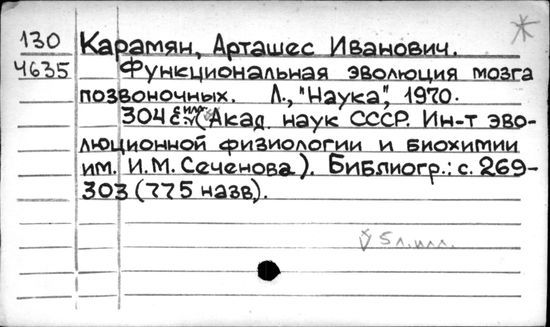 130 Карамян, Арташес Иванович.
4635 Функциональная эволюция мозга
позвоночных. Л., "Наука", 1970.
304 с. илл. (Акад. наук СССР. Ин-т эво-
люционной физиологии и биохимии
им. И.М. Сеченова). Библиогр.: с. 269-
303 (775 назв).
V 5 л. илл.